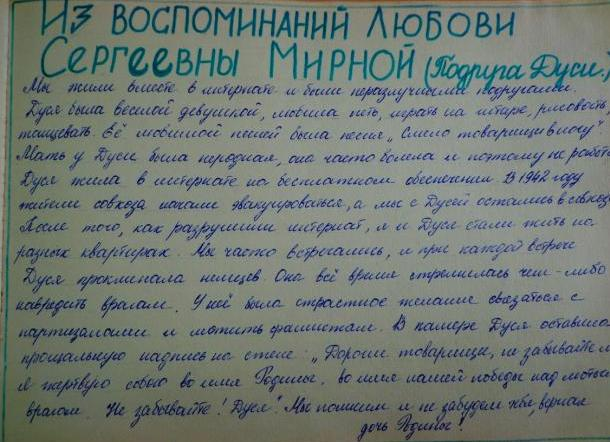 Из воспоминаний Любови
Сергеевны Мирной (Подруга Дуси.)
Мы жили вместе в интернате и были неразлучными подругами.
Дуся была веселой девушкой, любила петь, играть на гитаре, рисовать,
танцевать. Её любимой песней была песня „Смело товарищи в ногу".
Мать у Дуси была неродная, она часто болела и поэтому не работа
Дуся жила в интернате на бесплатном обеспечении. В 1942 году
жители совхоза начали эвакуироваться, а мы с Дусей остались в совхоз
После того, как разрушили интернат, я и Дуся стали жить на
разных квартирах. Мы часто встречались, и при каждой встрече
Дуся проклинала немцев. Она всё время стремилась чем-либо
навредить врагам. У неё было страстное желание связаться с
партизанами и мстить фашистам. В камере Дуся оставила
прощальную надпись на стене: „Дорогие товарищи, не забывайте м
Я жертвую собою во имя Родины, во имя нашей победы над
врагом. Не забывайте! Дуся". Мы помним и не забудем тебя, верная
дочь Родины!